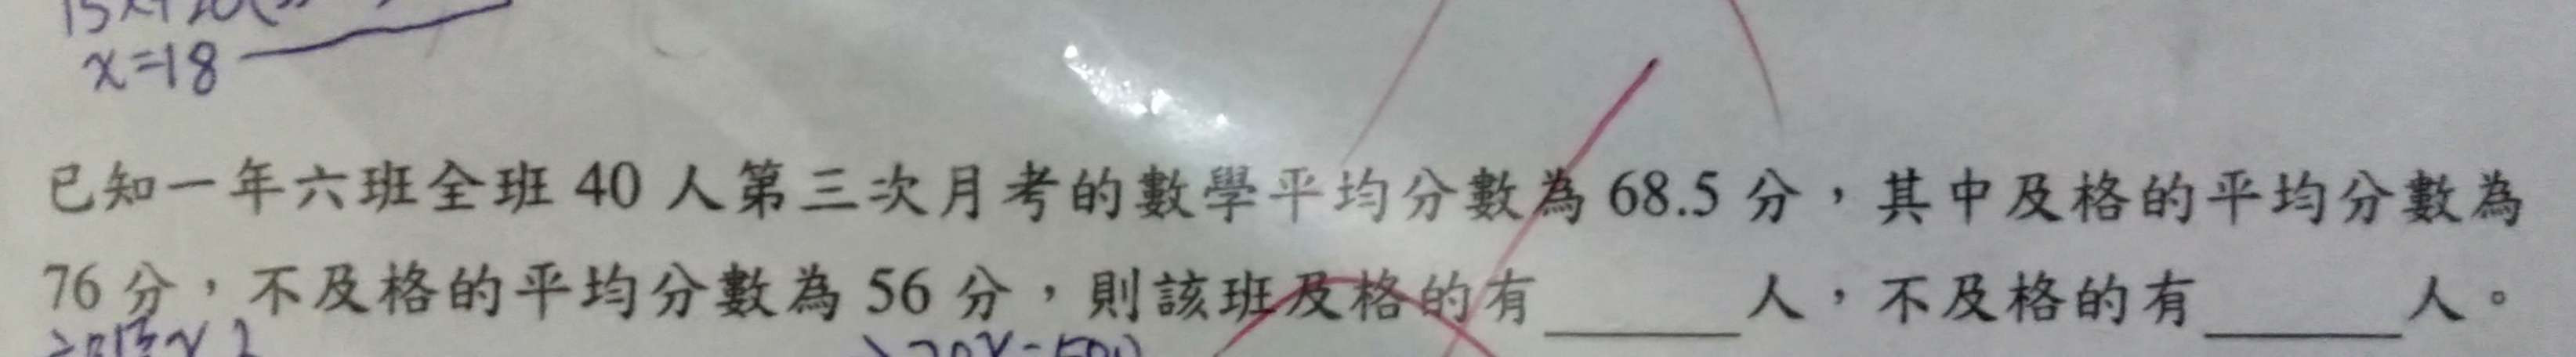 x=18
已知一年六班全班 40 人第三次月考的數學平均分數為 68.5 分，其中及格的平均分數為
76 分，不及格的平均分數為 56 分，則該班及格的有______人，不及格的有______人。